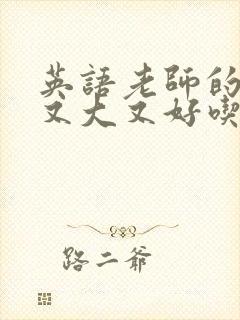 英語老師的
又大又好喫
路二爺